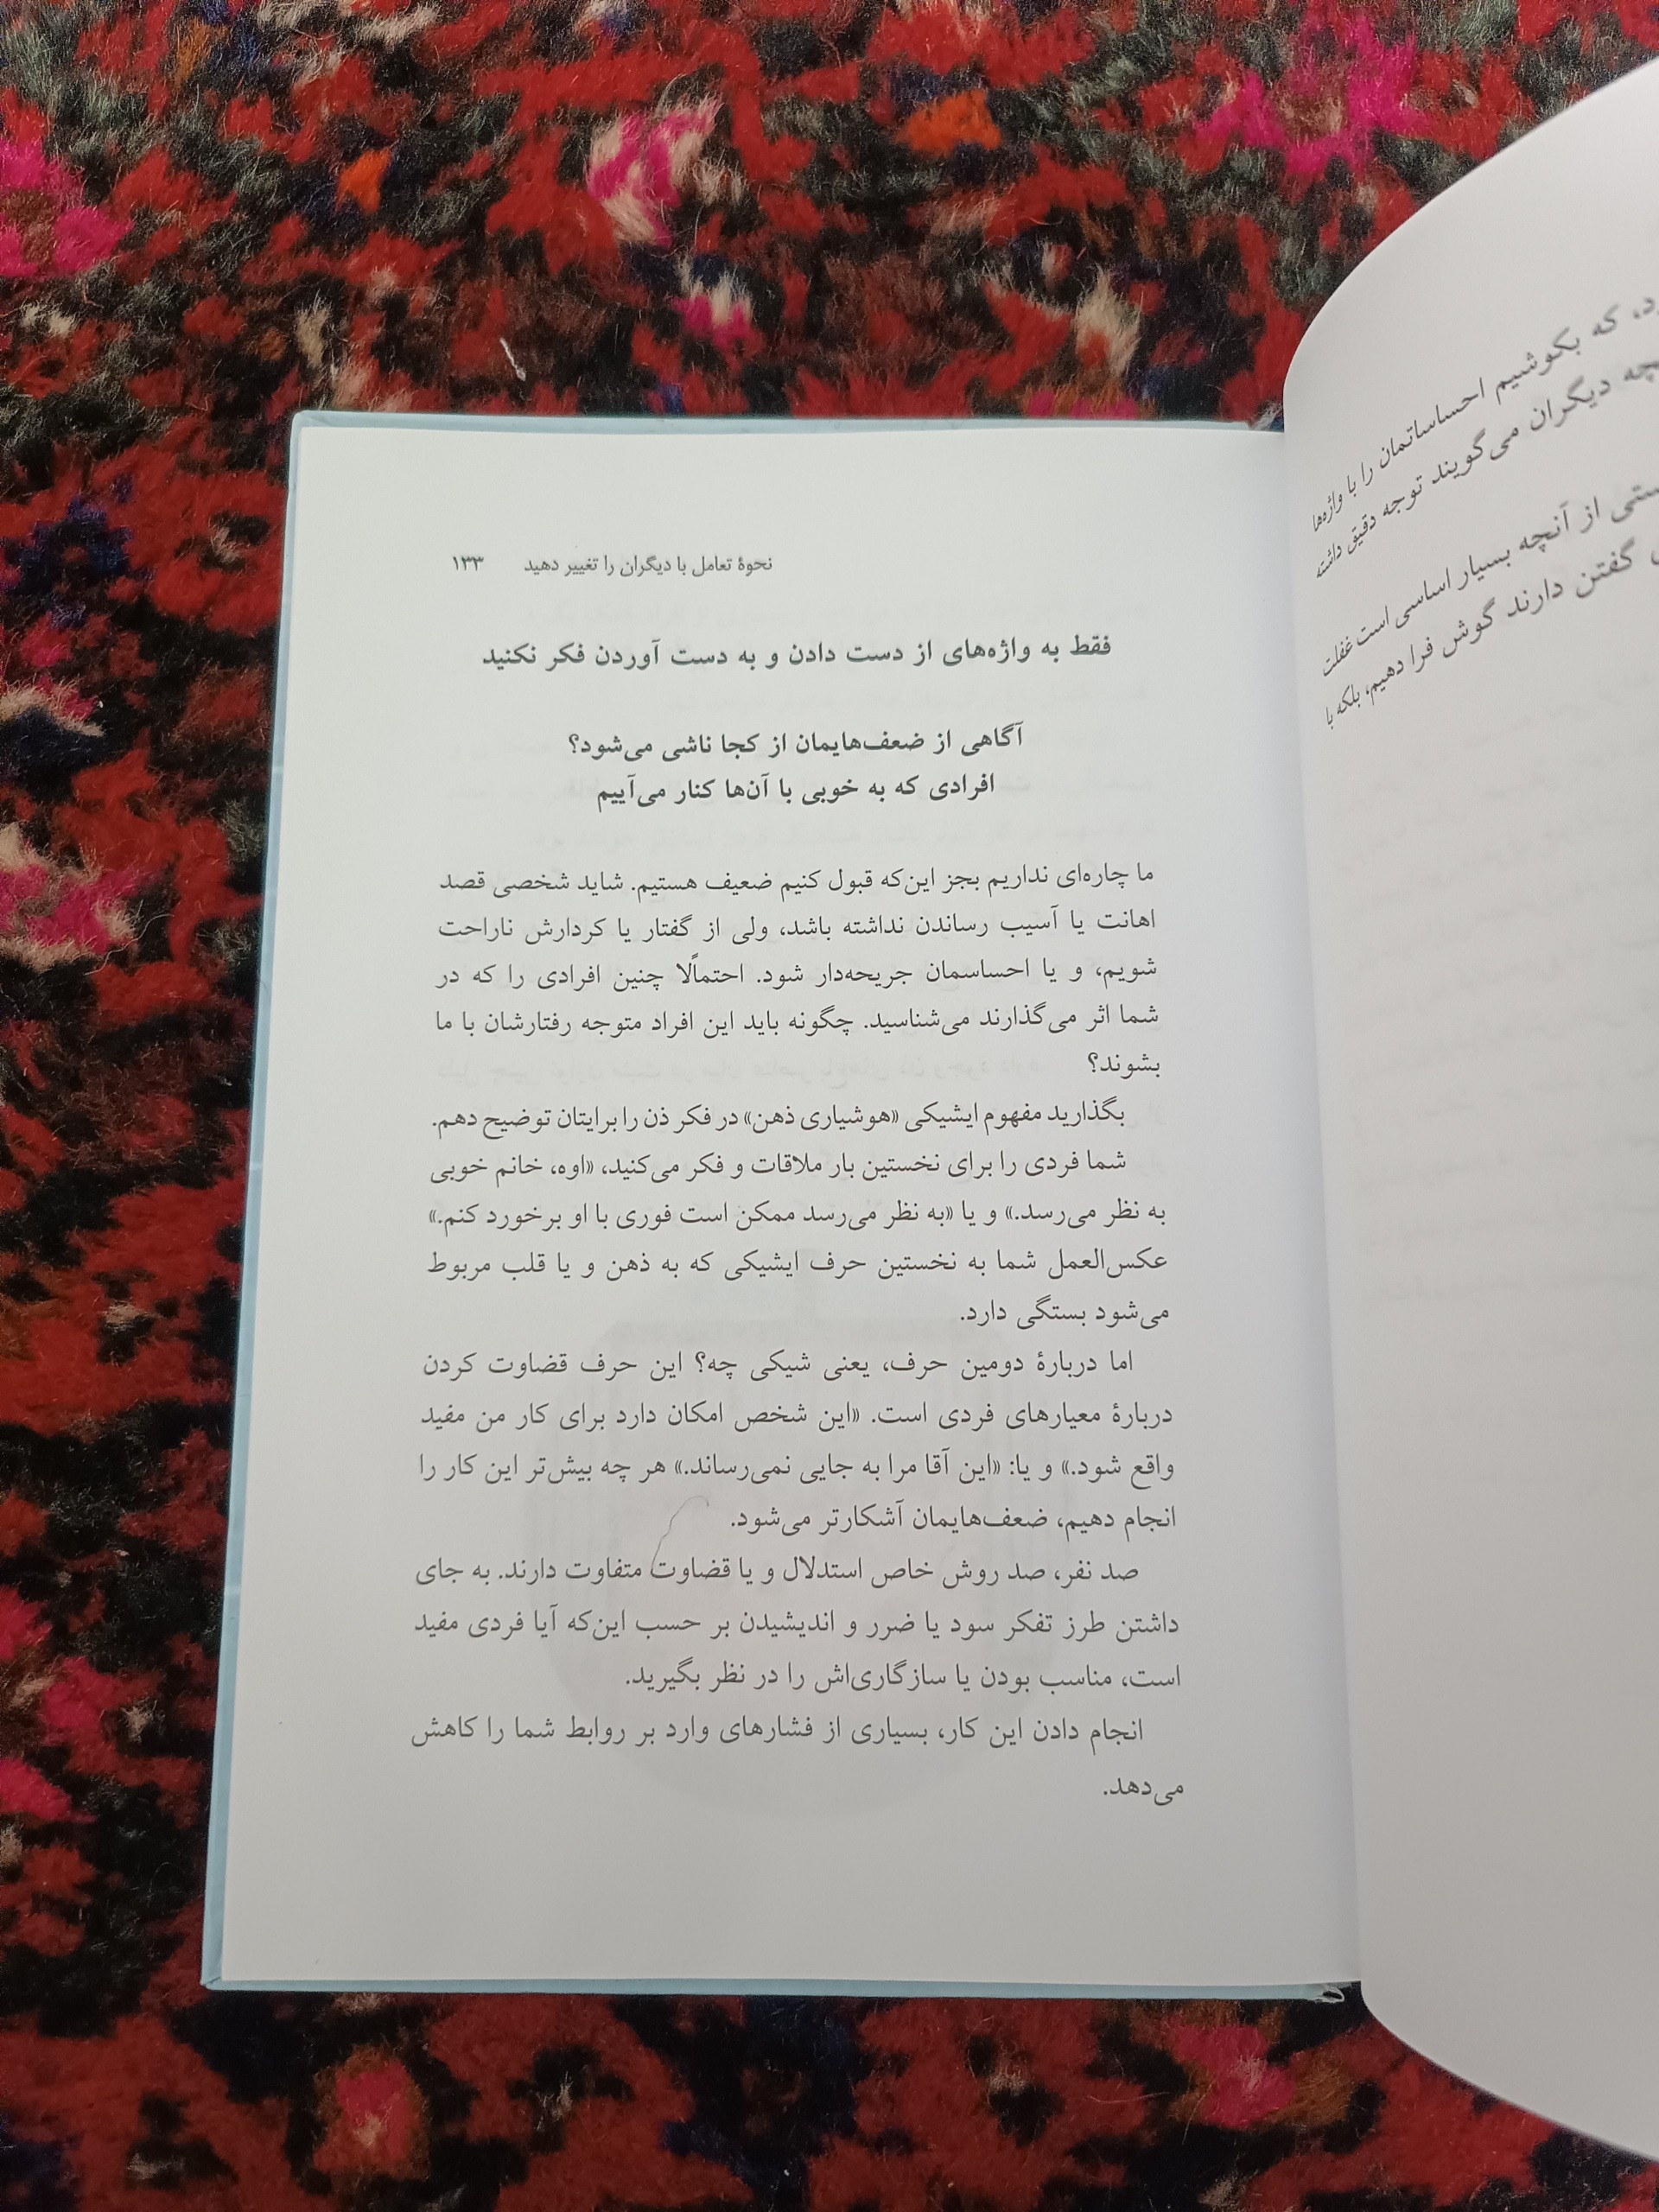 نحوۀ تعامل با دیگران را تغییر دهید ۱۳۳
فقط به واژه‌های از دست دادن و به دست آوردن فکر نکنید
آگاهی از ضعف‌هایمان از کجا ناشی می‌شود؟
افرادی که به خوبی با آن‌ها کنار می‌آییم
ما چاره‌ای نداریم بجز این‌که قبول کنیم ضعیف هستیم. شاید شخصی قصد
اهانت یا آسیب رساندن نداشته باشد، ولی از گفتار یا کردارش ناراحت
شویم، و یا احساسمان جریحه‌دار شود. احتمالًا چنین افرادی را که در
شما اثر می‌گذارند می‌شناسید. چگونه باید این افراد متوجه رفتارشان با ما
بشوند؟
بگذارید مفهوم ایشیکی «هوشیاری ذهن» در فکر ذن را برایتان توضیح دهم.
شما فردی را برای نخستین بار ملاقات و فکر می‌کنید، «اوه، خانم خوبی
به نظر می‌رسد.» و یا «به نظر می‌رسد ممکن است فوری با او برخورد کنم.»
عکس‌العمل شما به نخستین حرف ایشیکی که به ذهن و یا قلب مربوط
می‌شود بستگی دارد.
اما دربارۀ دومین حرف، یعنی شیکی چه؟ این حرف قضاوت کردن
دربارۀ معیارهای فردی است. «این شخص امکان دارد برای کار من مفید
واقع شود.» و یا: «این آقا مرا به جایی نمی‌رساند.» هر چه بیش‌تر این کار را
انجام دهیم، ضعف‌هایمان آشکارتر می‌شود.
صد نفر، صد روش خاص استدلال و یا قضاوت متفاوت دارند. به جای
داشتن طرز تفکر سود یا ضرر و اندیشیدن بر حسب این‌که آیا فردی مفید
است، مناسب بودن یا سازگاری‌اش را در نظر بگیرید.
انجام دادن این کار، بسیاری از فشارهای وارد بر روابط شما را کاهش
می‌دهد.
که بکوشیم احساساتمان را با واژه‌ها
دیگران می‌گویند توجه دقیق داشته
از آنچه بسیار اساسی است غفلت
گفتن دارند گوش فرا دهیم، بلکه با